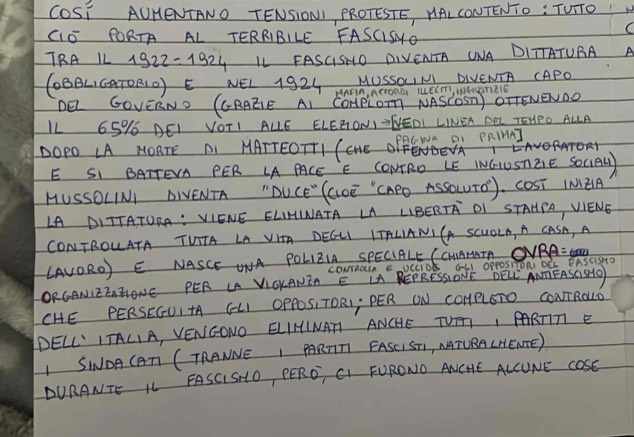 COSÍ AUMENTANO TENSIONI, PROTESTE, MALCONTENTO: TUTTO
CIÒ PORTA AL TERRIBILE FASCISMO
TRA IL 1922-1924 IL FASCISMO DIVENTA UNA DITTATURA
(OBBLIGATORIO) E NEL 1924 MUSSOLINI DIVENTA CAPO
MAFIA, ACCORDI ILLECITI, INGIUSTIZIE
DEL GOVERNO (GRAZIE AI COMPLOTTI NASCOSTI) OTTENENDO
IL 65% DEI VOTI ALLE ELEZIONI → [VEDI LINEA DEL TEMPO ALLA
PAGINA DI PRIMA]
DOPO LA MORTE DI MATTEOTTI (CHE DIFFENDEVA I LAVORATORI
E SI BATTEVA PER LA PACE E CONTRO LE INGIUSTIZIE SOCIALI)
MUSSOLINI DIVENTA "DUCE" (CIOÈ "CAPO ASSOLUTO"). COSÍ INIZIA
LA DITTATURA: VIENE ELIMINATA LA LIBERTÀ DI STAMPA, VIENE
CONTROLLATA TUTTA LA VITA DEGLI ITALIANI (A SCUOLA, A CASA, A
LAVORO) E NASCE UNA POLIZIA SPECIALE (CHIAMATA OVRA =
CONTROLLA E UCCIDE GLI OPPOSITORI DEL FASCISMO
ORGANIZZAZIONE PER LA VIGILANZA E LA REPRESSIONE DELL'ANTIFASCISMO)
CHE PERSEGUITA GLI OPPOSITORI; PER UN COMPLETO CONTROLLO
DELL'ITALIA, VENGONO ELIMINATI ANCHE TUTTI I PARTITI E
I SINDACATI (TRANNE I PARTITI FASCISTI, NATURALMENTE)
DURANTE IL FASCISMO, PERÒ, CI FURONO ANCHE ALCUNE COSE